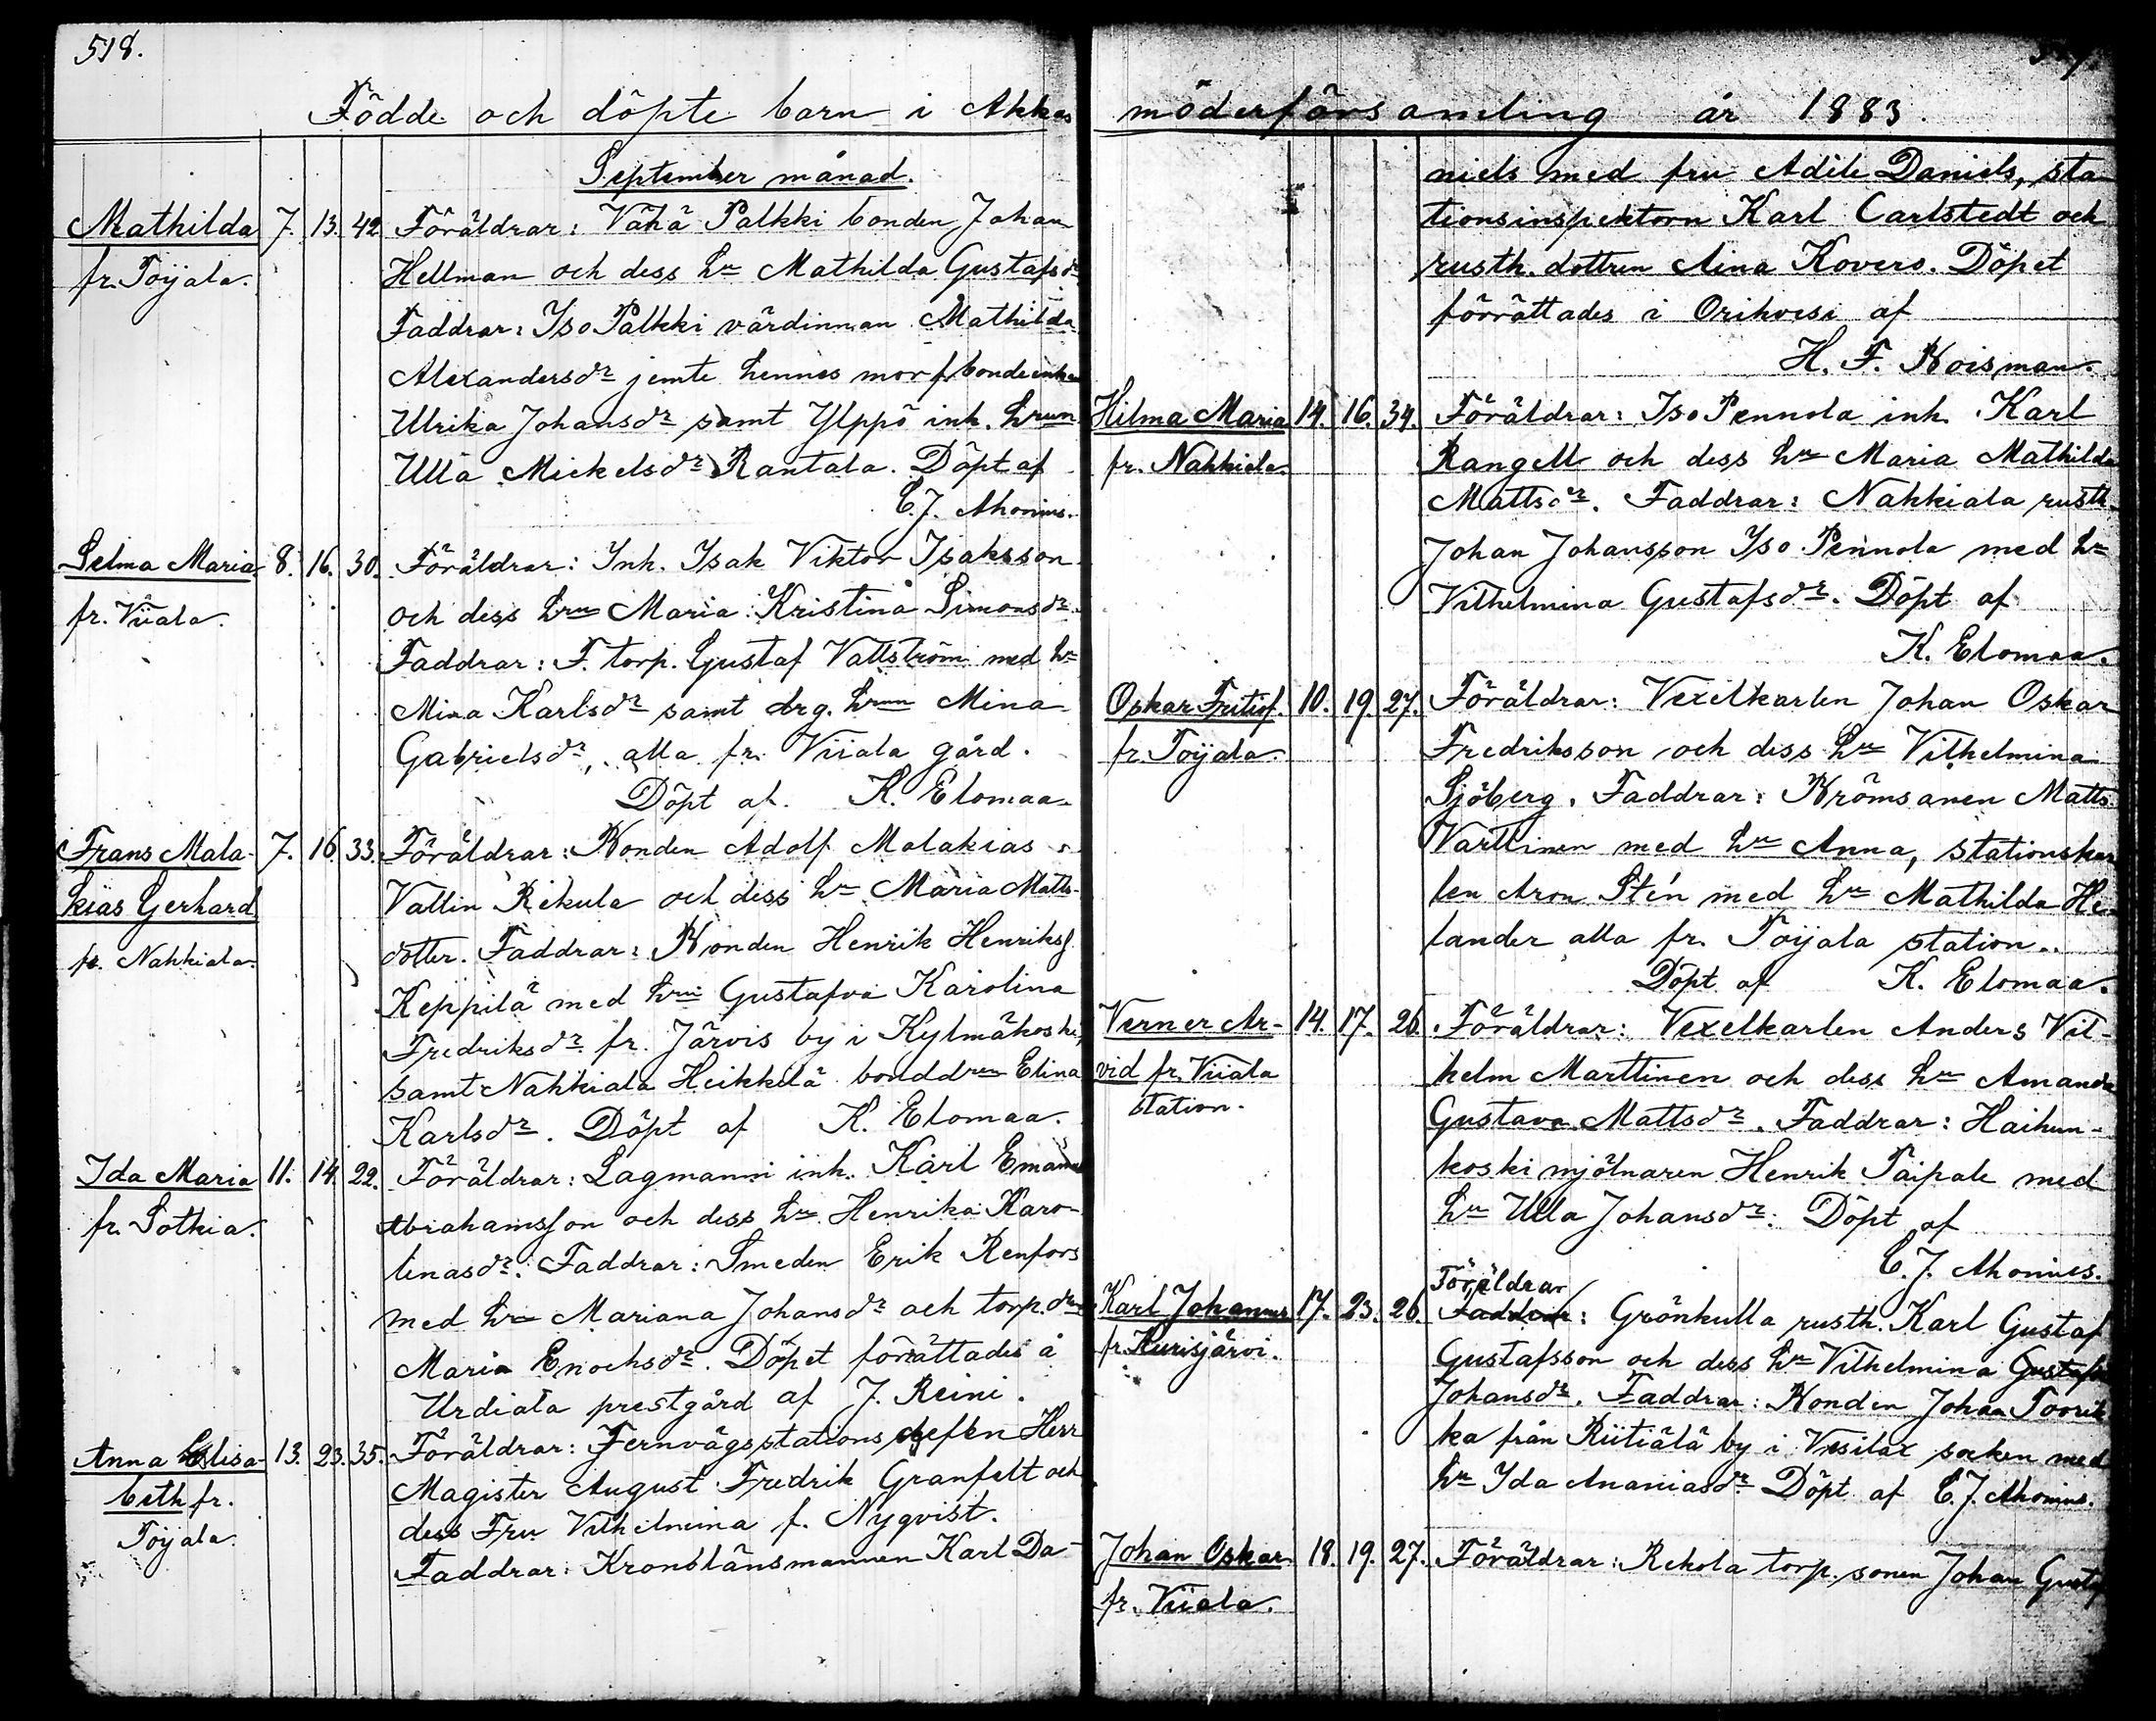 518.
Födde och döpte barn i Akkas
September månad.
Mathilda 7. 13. 42 Föräldrar: Vähä Palkki bonden Johan
fr. Toijala. Hellman och dess hu Mathilda Gustafsdr
Faddrar: Iso Palkki värdinnan Mathilda
Alexandersdr jemte hennes mor f. bondeenkan
Ulrika Johansdr samt Ylppö inh. hrun
Ulla Mickelsdr Rantala. Döpt af
E. J. Ahonius.
Selma Maria 8. 16. 30. Föräldrar: Inh. Isak Viktor Isaksson
fr. Viiala. och dess hru Maria Kristina Simonsdr
Faddrar: F. torp. Gustaf Vallström med hu
Mina Karlsdr samt drg. hrun Mina
Gabrielsdr, alla fr. Viiala gård.
Döpt af. K. Elomaa.
Frans Mala- 7. 16. 33. Föräldrar: Bonden Adolf Malakias
kias Gerhard Vallin Rekula och dess hu Maria Matts-
fr. Nahkiala. dotter. Faddrar: Bonden Henrik Henrikss.
Keppilä med hru Gustafva Karolina
Fredriksdr fr. Järvis by i Kylmäkoski,
samt Nahkiala Heikkilä bonddren Elina
Karlsdr. Döpt af K. Elomaa.
Ida Maria 11. 14. 22. Föräldrar: Lagmanni inh. Karl Emanuel
fr. Sotkia. Abrahamsson och dess hu Henrika Karo-
linasdr. Faddrar: Smeden Erik Renfors
med hru Mariana Johansdr och torp. drn
Maria Enochsdr. Döpet förrättades å
Urdiala prestgård af J. Reini.
Anna Elisa- 13. 23. 35. Föräldrar: Jernvägsstationschefen Herr
beth fr. Magister August Fredrik Granfelt och
Toijala. dess Fru Vilhelmina f. Nyqvist.
Faddrar: Kronolänsmannen Karl Da-
möderförsamling år 1883.
niels med fru Adéle Daniels, sta-
tionsinspektorn Karl Carlstedt och
rusth. dottren Aina Kovero. Döpet
förrättades i Orihvesi af
H. F. Roisman.
Hilma Maria 14. 16. 34. Föräldrar: Iso Pennola inh. Karl
fr. Nahkiala. Rangell och dess hu Maria Mathilda
Mattsdr. Faddrar: Nahkiala rusth.
Johan Johansson Iso Pennola med hu
Vilhelmina Gustafsdr. Döpt af
K. Elomaa.
Oskar Fritiof. 10. 19. 27. Föräldrar: Vexelkarlen Johan Oskar
fr. Toijala. Fredriksson och dess hu Vilhelmina
Sjöberg. Faddrar: Bromsaren Matts
Varttinen med hu Anna, stationskar
len Aron Stén med hu Mathilda He-
lander alla fr. Toijala station.
Döpt af K. Elomaa.
Verner Ar- 14. 17. 26. Föräldrar: Vexelkarlen Anders Vil-
vid fr. Viiala helm Marttinen och dess hu Amanda
station. Gustava Mattsdr. Faddrar: Haihun-
koski mjölnaren Henrik Taipale med
hu Ulla Johansdr. Döpt af
E. J. Ahonius.
Föräldrar
Karl Johannes 17. 23. 26. Faddrar: Grönkulla rusth. Karl Gustaf
fr. Kurisjärvi. Gustafsson och dess hu Vilhelmina Gustafva
Johansdr. Faddrar: Bonden Johan Toorik
ka från Riitiälä by i Vesilax socken med
hu Ida Ananiasdr Döpt af E. J. Ahonius.
Johan Oskar 18. 19. 27. Föräldrar: Rekola torp. sonen Johan Gustaf
fr. Viiala.